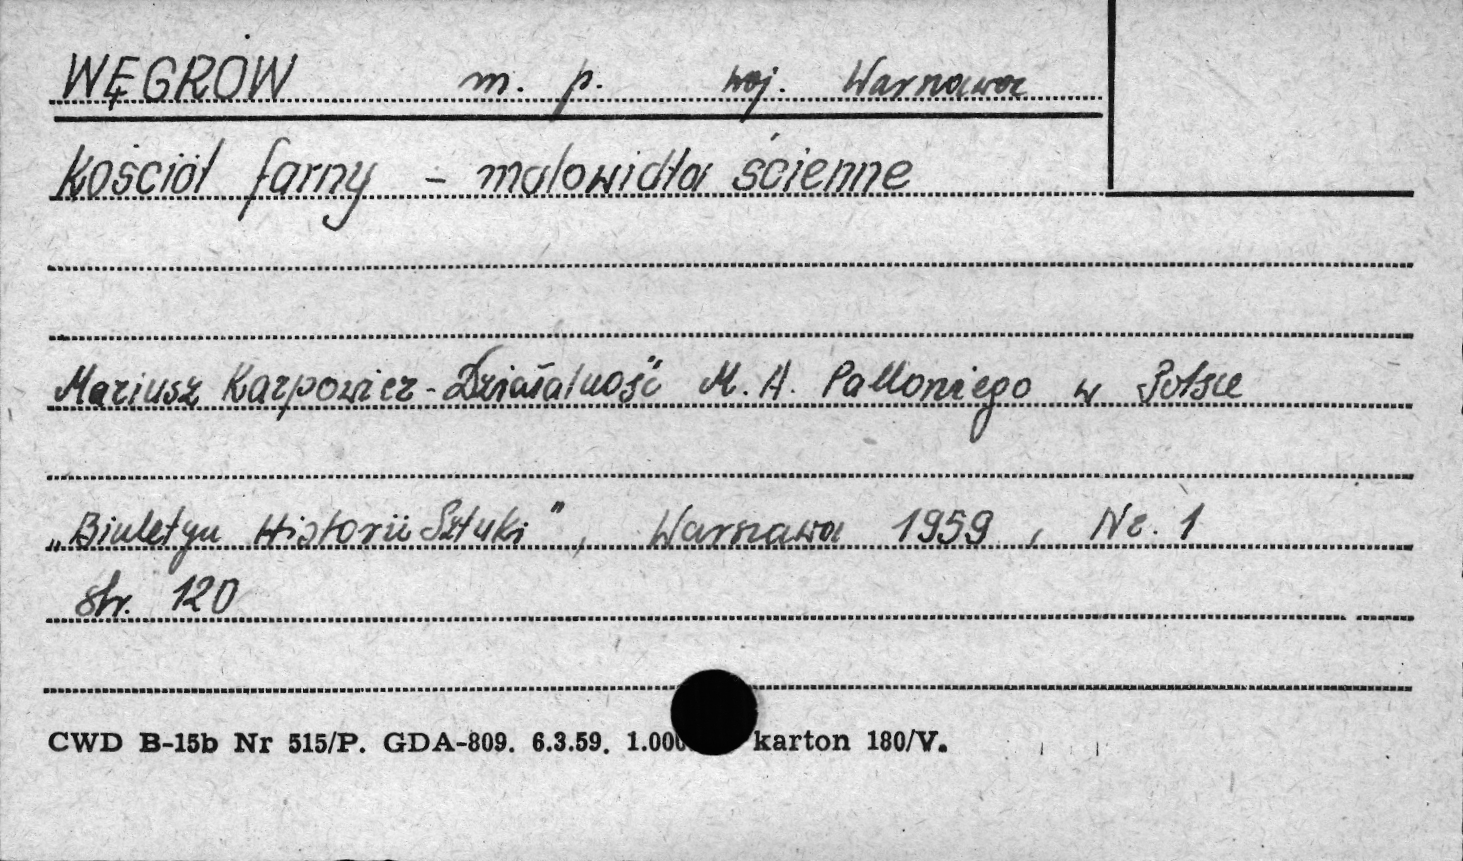 WĘGRÓW m. p. woj. Warszawa
Kościół farny - malowidła ścienne
Mariusz Karpowicz - Działalność M. A. Palloniego w Polsce
„Biuletyn Historii Sztuki", Warszawa 1959, Nr. 1
str. 120
CWD B-15b Nr 515/P. GDA-809. 6.3.59. 1.000 karton 180/V.